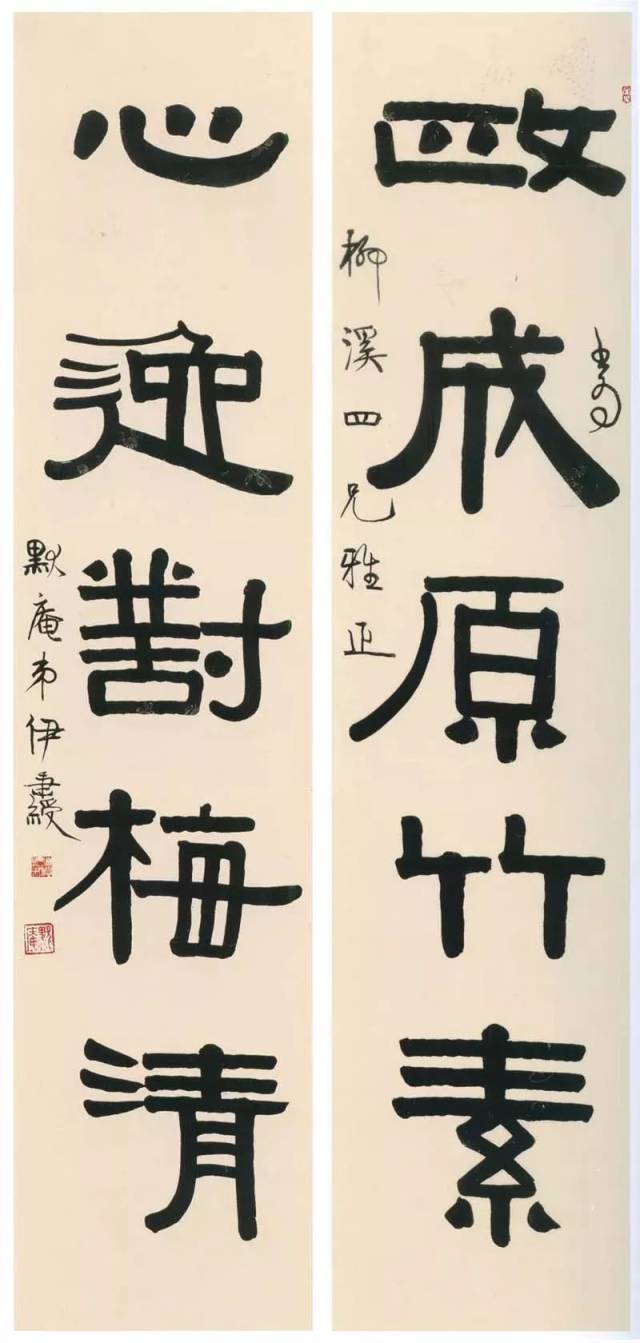 政成原竹素
書為
柳溪四兄雅正
心逸對梅清
默庵弟伊秉綬